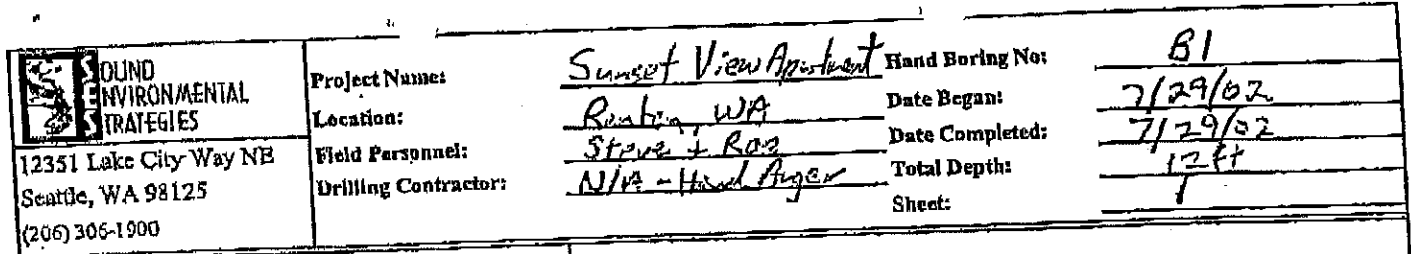 SOUND
ENVIRONMENTAL
STRATEGIES
12351 Lake City Way NE
Seattle, WA 98125
(206) 306-1900
Project Name: Sunset View Apartment
Location: Renton, WA
Field Personnel: Steve +
Drilling Contractor: N/A - Hand Auger
Hand Boring No: B1
Date Began: 7/29/02
Date Completed: 7/29/02
Total Depth: 12 ft
Sheet: 1